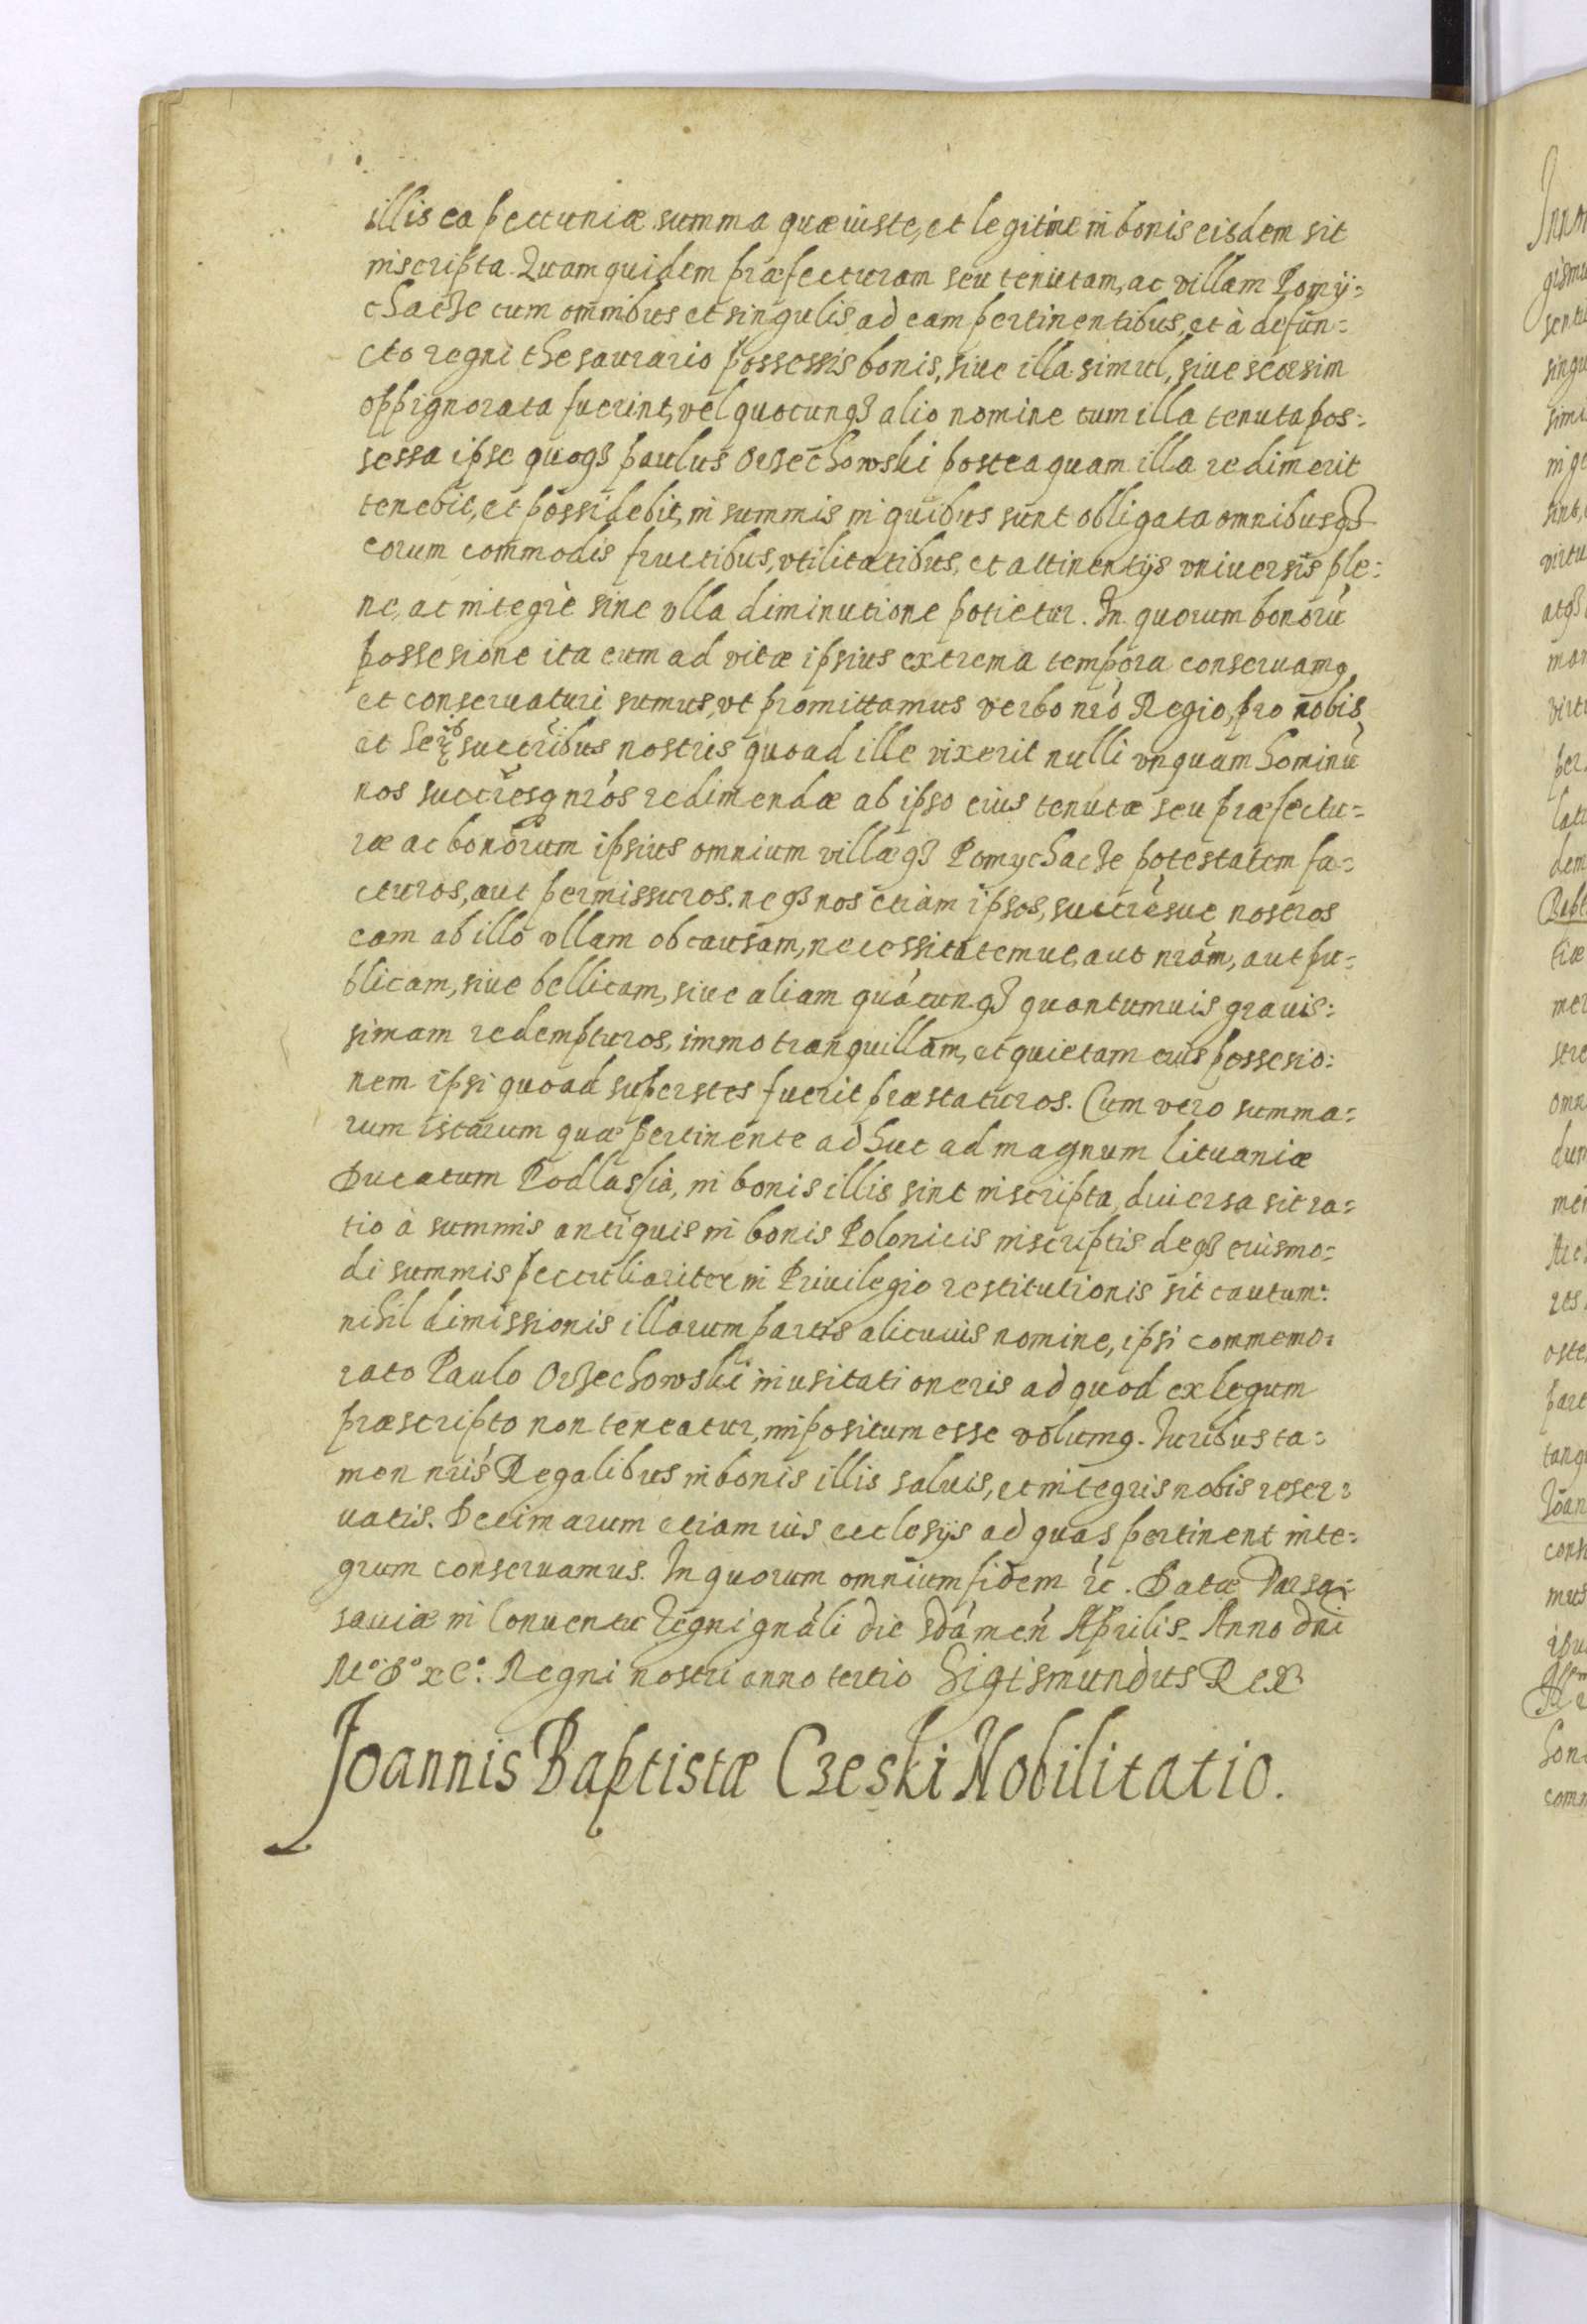 illis ea pecuniæ summa quæ iuste, et legitime in bonis eisdem sit
inscripta. Quam quidem præfecturam seu tenutam, ac villam Pomÿ=
chacze cum omnibus et singulis ad eam pertinentibus, et à defun=
cto regni thesaurario possessis bonis, siue illa simul, siue seorsim
oppignorata fuerint, vel quocunq3 alio nomine cum illa tenuta pos=
sessa ipse quoq3 paulus Orzechowski postea quam illa redimerit
tenebit, et possidebit, in summis in quibus sunt obligata omnibusq3
eorum commodis fructibus, vtilitatibus, et attinentijs vniuersis ple=
ne, ac integrè sine vlla diminutione potietur. In quorum bonorū
possesione ita eum ad vitæ ipsius extrema tempora conseruamq
et conseruaturi sumus, vt promittamus verbo nrō Regio, pro nobis
et succribus nostris quoad ille vixerit nulli vnquam hominū
nos succresq nrōs redimendæ ab ipso eius tenutæ seu præfectu=
ræ ac bonorum ipsius omnium villæq3 Pomychacze potestatem fa=
cturos, aut permissuros. neq3 nos etiam ipsos, succrēsue nostros
eam ab illo vllam ob causam, necessitatemue, aut nrām, aut pu=
blicam, siue bellicam, siue aliam quācunq3 quantumuis grauis=
simam redempturos, immo tranquillam, et quietam eius possesio=
nem ipsi quoad superstes fuerit præstaturos. Cum vero summa=
rum istarum quæ pertinente adhuc ad magnum lituaniæ
Ducatum Podlassia, in bonis illis sint inscripta, diuersa sit ra=
tio à summis antiquis in bonis Polonicis inscriptis deq3 eiusmo=
di summis peculiariter in Priuilegio restitutionis sit cautum:
nihil dimissionis illarum partis alicuius nomine, ipsi commemo=
rato Paulo Orzechowski inusitati oneris ad quod ex legum
præscripto non teneatur, impositum esse volumq. Iuribus ta=
men nrīs Regalibus in bonis illis saluis, et integris nobis reser=
uatis. Decimarum etiam ius ecclesijs ad quas pertinent inte=
grum conseruamus. In quorum omnium fidem rc. Datæ Varsa=
sauiæ in Conuentu Regni gnāli die sdā men Aprilis. Anno dni
Mº Dº xCº. Regni nostri anno tertio Sigismundus Rex
Joannis Baptistæ Czeski Nobilitatio.